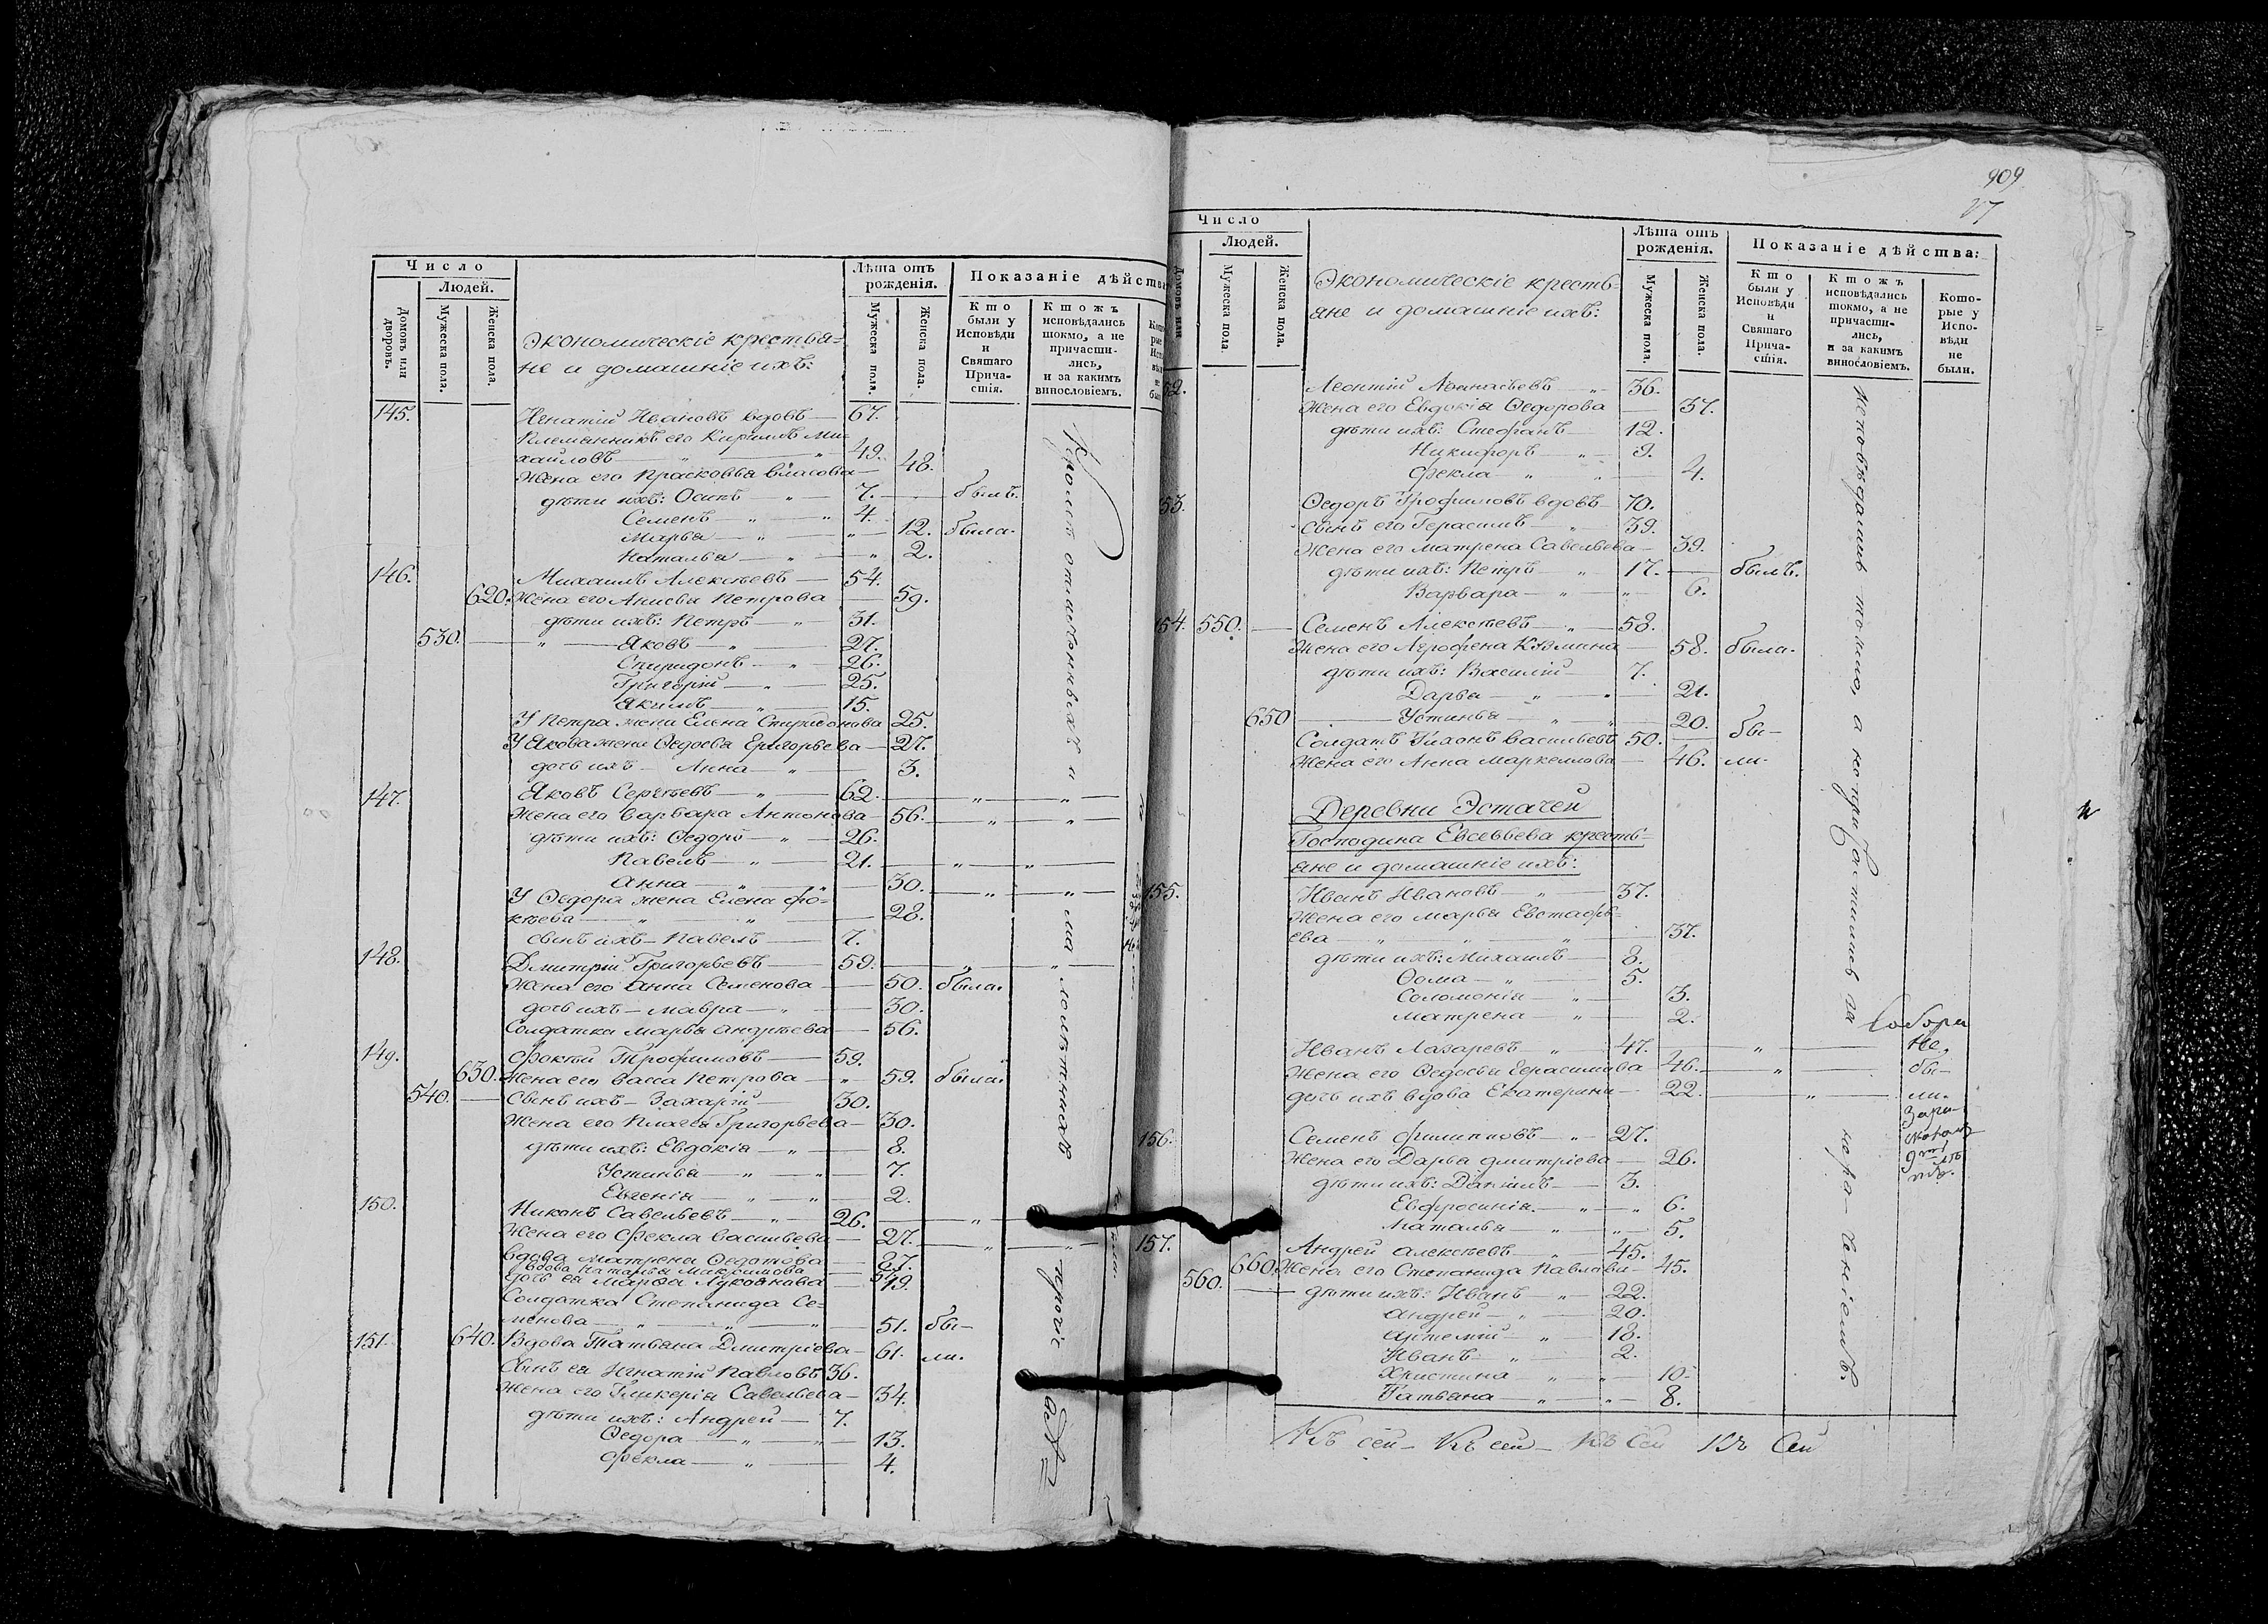 Число
Людей.
Домовъ или дворовъ.
Мужеска пола.
Женска пола.
Экономическіе крестья-
не и домашніе ихъ:
Лѣта отъ рожденія.
Мужеска пола.
Женска пола.
Показаніе дѣйства
Кто были у Исповѣди и Святаго Причастія.
Ктожъ исповѣдались токмо, а не причастились, и за какимъ винословіемъ.
145. Игнатій Ивановъ вдовъ — 67.
Племянникъ его Кирилъ Ми-
хайловъ — 49.
Жена его Прасковья Власова — 48.
дѣти ихъ: Осипъ — 7. — былъ.
Семенъ — 4.
Марья — 12. была.
Наталья — 2.
146. Михаилъ Алексѣевъ — 54.
620. Жена его Анисья Петрова — 59.
дѣти ихъ: Петръ — 31.
530. — Яковъ — 27.
Спиридонъ — 26.
Григорій — 25.
Якимъ — 15.
У Петра жена Елена Спиридонова 25.
У Якова жена Ѳедосья Григорьева — 27.
дочь ихъ — Анна — 3.
147. Яковъ Сергѣевъ — 62.
Жена его Варвара Антонова — 56.
дѣти ихъ: Ѳедоръ — 26.
Павелъ — 21.
Анна — 30.
У Ѳедора жена Елена Фо-
кѣева — 28.
сынъ ихъ — Павелъ — 7.
148. Дмитрій Григорьевъ — 59.
Жена его Анна Семенова — 50. была.
дочь ихъ — Мавра — 30.
Солдатка Марья Андрѣева — 56.
149. Фокѣй Трофимовъ — 59.
630. Жена его Васса Петрова — 59. была.
540. — Сынъ ихъ — Захарій — 30.
Жена его Пелагея Григорьева — 30.
дѣти ихъ: Евдокія — 8.
Устинья — 7.
Евгенія — 2.
150. Никонъ Савельевъ — 26.
Жена его Фекла Васильева — 27.
Вдова Матрена Ѳедотова — 87.
вдова Наталья Максимова
дочь ея Марѳа Лукоянова — 19.
Солдатка Степанида Се-
менова — 51. бы-
151. 640. Вдова Татьяна Дмитріева — 61. ли.
Сынъ ея Игнатій Павловъ 36.
Жена его Гликерія Савельева — 34.
дѣти ихъ: Андрей — 7.
Ѳедора — 13.
Фекла — 4.
Кромѣ отмѣченныхъ и малолѣтнихъ прочіе всѣ
909
Число
Людей.
Домовъ или
Мужеска пола.
Женска пола.
Экономическіе кресть-
яне и домашніе ихъ:
Лѣта отъ рожденія.
Мужеска пола.
Женска пола.
Показаніе дѣйства:
Кто были у Исповѣди и Святаго Причастія.
Ктожъ исповѣдались токмо, а не причастились, и за какимъ винословіемъ.
Которые у Исповѣди не были.
52. Леонтій Афанасьевъ — 36.
Жена его Евдокія Ѳедорова — 37.
дѣти ихъ: Стефанъ — 12.
Никифоръ — 9.
Фекла — 4.
53. Ѳедоръ Трофимовъ вдовъ — 70.
сынъ его Герасимъ — 39.
Жена его Матрена Савельева — 39.
дѣти ихъ: Петръ — 17. — былъ.
Варвара — 6.
154. 550. — Семенъ Алексѣевъ — 58.
Жена его Агрофена Кузмина — 58. была.
дѣти ихъ: Василій — 7.
Дарья — 21.
650 — Устинья — 20. бы-
Солдатъ Тихонъ Васильевъ 50.
Жена его Анна Маркеллова — 46. ли.
Деревни Эстачей
Господина Евсевьева кресть-
яне и домашніе ихъ:
155. Иванъ Ивановъ — 37.
Жена его Марья Евстафь-
ева — 37.
дѣти ихъ: Михаилъ — 8.
Ѳома — 5.
Соломонія — 3.
Матрена — 2.
Иванъ Лазаревъ — 47. — Не
Жена его Ѳедосья Герасимова 46. — бы-
дочь ихъ вдова Екатерина — 22. — ли.
156. Семенъ Филиповъ — 27.
Жена его Дарья Дмитріева — 26.
дѣти ихъ: Даніилъ — 3.
Евфросинія — 6.
Наталья — 5.
157. Андрей Алексѣевъ — 45.
660. Жена его Степанида Павлова — 45.
560. — дѣти ихъ: Иванъ — 22.
Андрей — 20.
Артемій — 18.
Иванъ — 2.
Христина — 10.
Татьяна — 8.
исповѣдались токмо, а не причастились за
Къ сей — Къ сей — Къ Сей Къ Сей